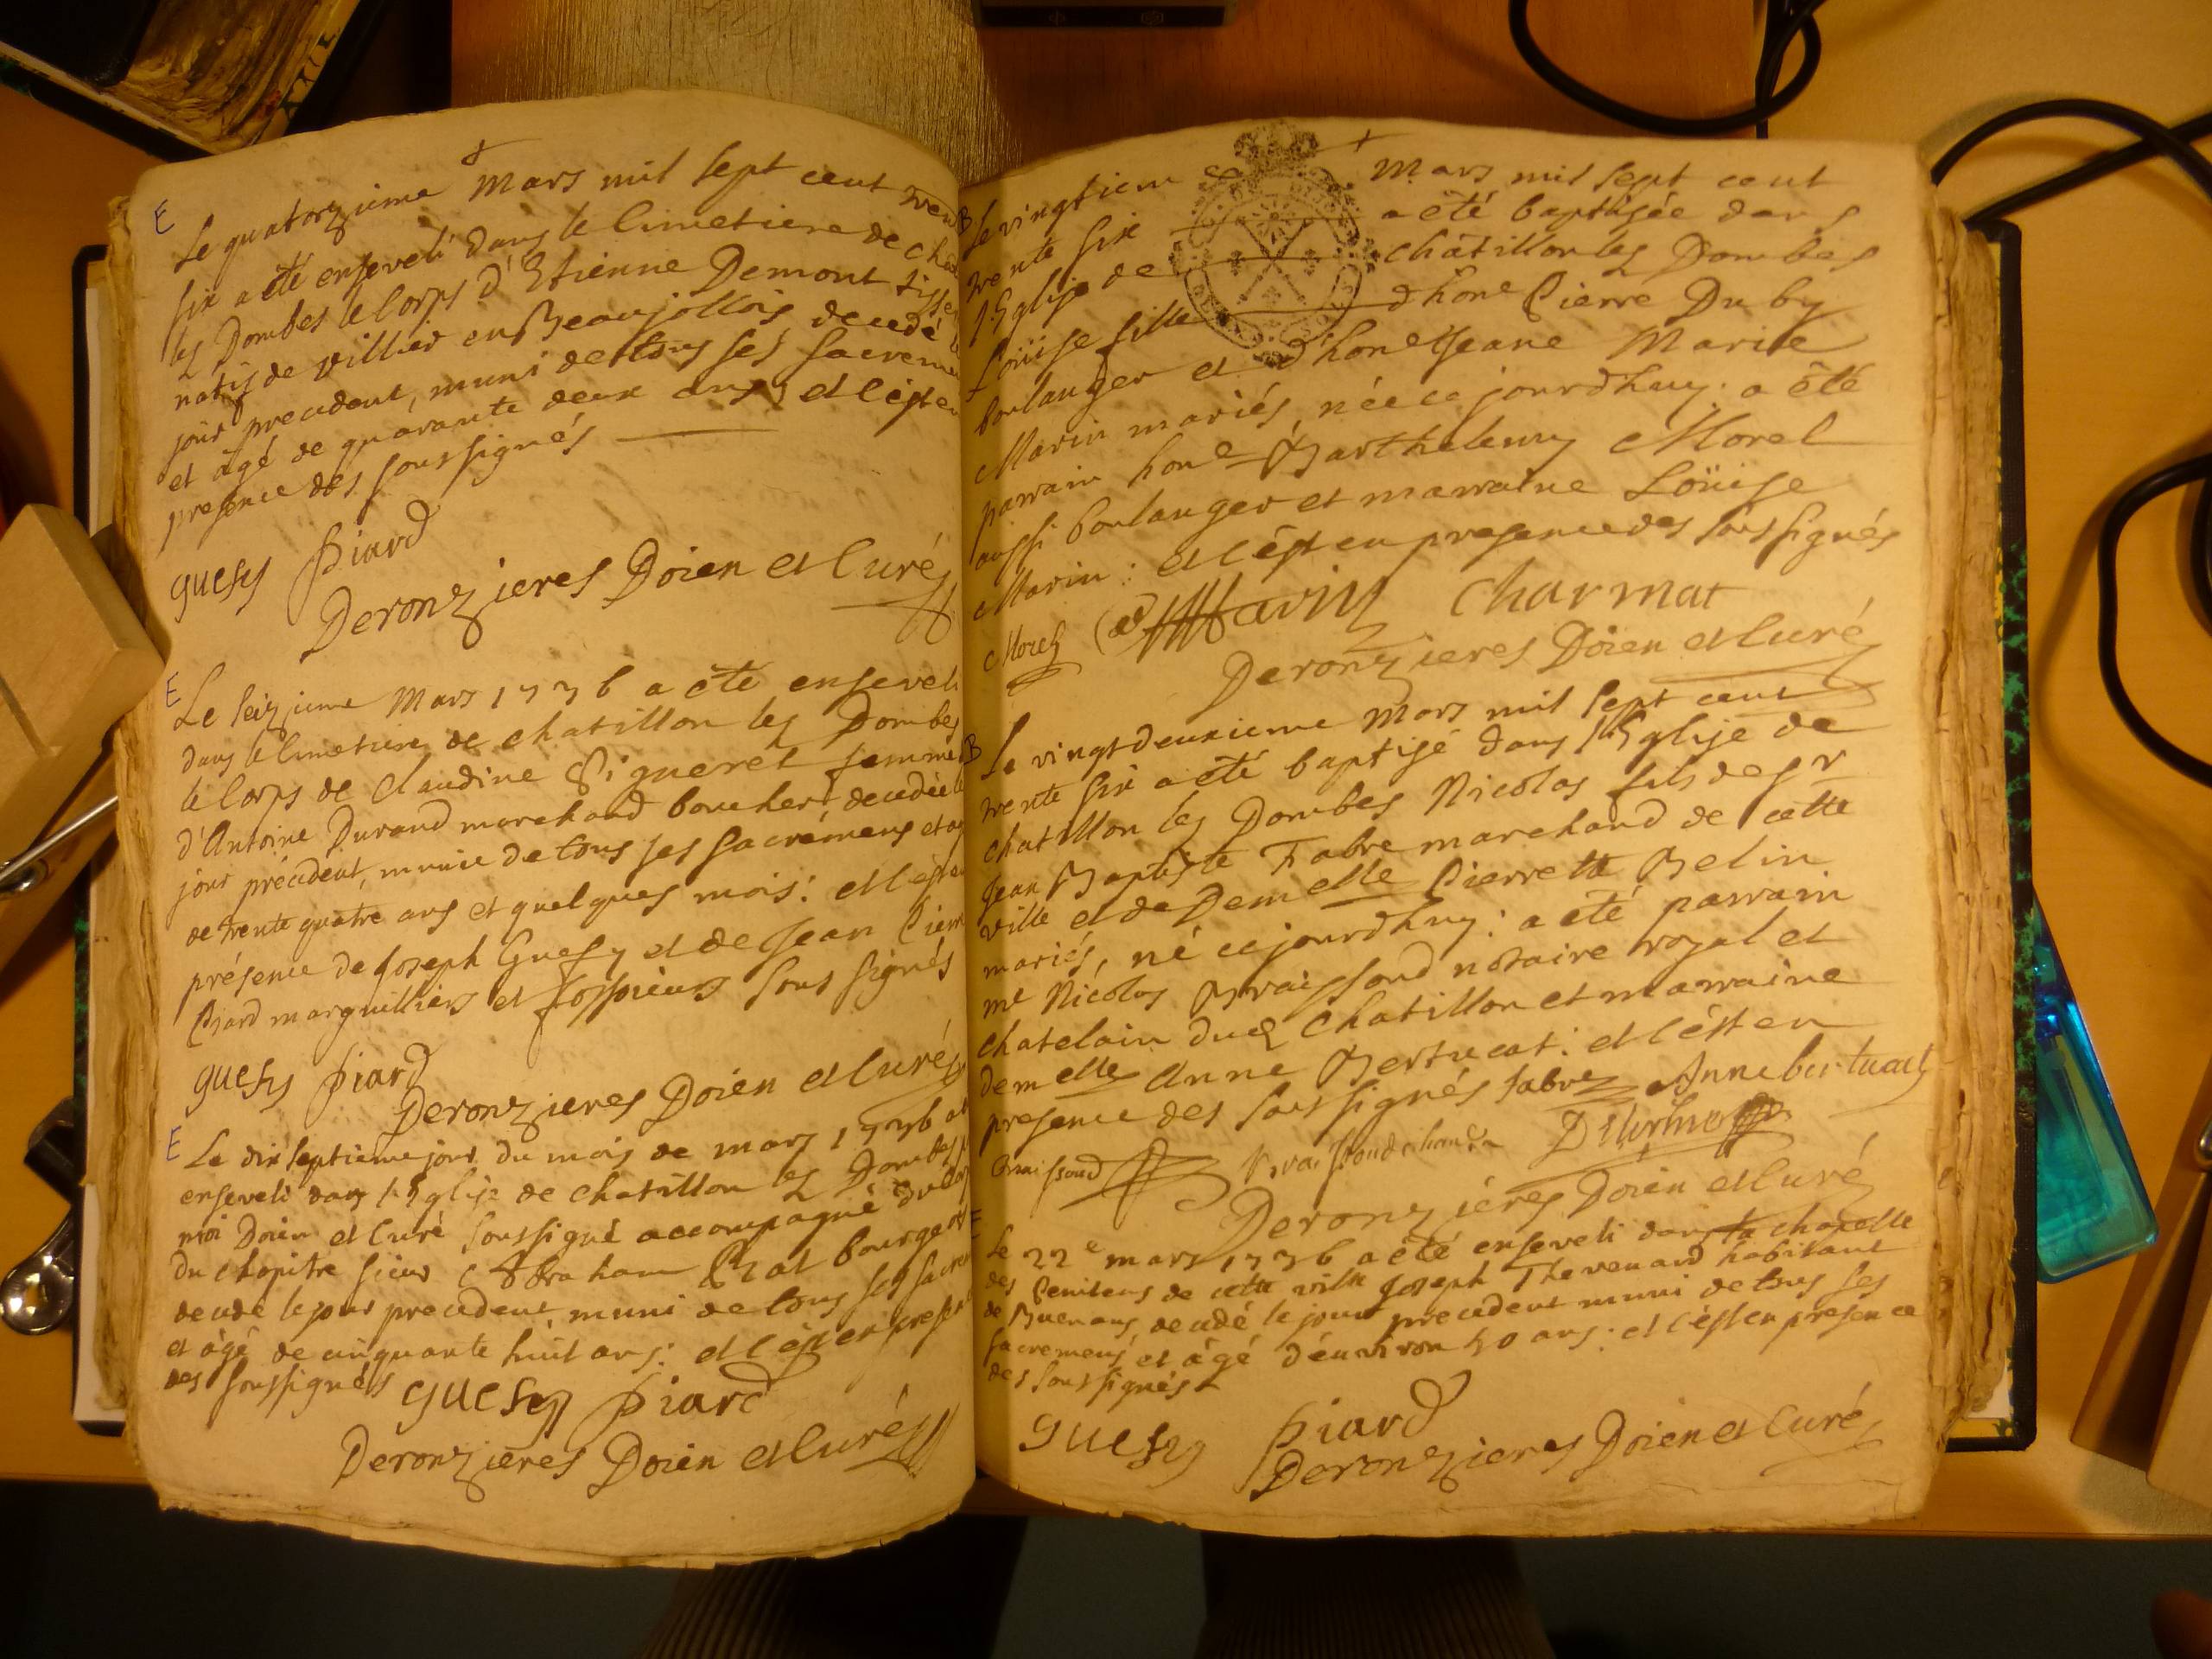 E
Le quatorzieme Mars mil sept cent tren
six a été enseveli dans le Cimetiere de cha
lez Dombes le Corps d'Etienne Demont tisse
natif de Villier en Beaujollois, decedé le
jour precedent, muni de tous ses sacremen
et âgé de quarante deux ans, et c'est en
presence des soussignés
guesy piard
Deronzieres Doien et Curé
E
Le seizieme Mars 1736 a été enseveli
dans le Cimetiere de chatillon lez Dombes
le Corps de Claudine Vigneret femme
d'Antoine Durand marchand boucher, decedée le
jour précedent, munie de tous ses sacrémens et ag
de trente quatre ans et quelques mois: et c'est en
présence de Joseph Guesy et de Jean Pierre
Piard marguilliers et fossoieurs soussignés
guesy piard
Deronzieres Doien et Curé
E
Le dix septieme jour du mois de mars 1736 a
enseveli dans l'Eglise de chatillon lez Dombes p
moi Doien et Curé soussigné accompagné du
du chapitre sieur Abraham Prat bourgeois
decedé le jour precedent, muni de tous ses sacre
et âgé de cinquante huit ans: et c'est en presen
des soussignés guesy piard
Deronzieres Doien et Curé
B
Le vingtiem Mars mil sept cent
trente six a été baptisée dans
l'Eglise de chatillon lez Dombes
Loüise fille d'hone Pierre Duby
boulanger et d'hone Jeane Marie
Marin mariés, née ce jourd'huy: a été
parrain hone Barthelemy Morel
aussi boulanger et marraine Loüise
Marin: et c'est en presence des soussignés
Morel Marin Charmat
Deronzieres Doien et Curé
B
Le vingt deuxieme Mars mil sept cent
trente six a été baptisé dans l'Eglise de
chatillon lez Dombes Nicolas fils de sr
Jean Baptiste Fabre marchand de cette
ville et de Demelle Pierrette Belin
mariés, né ce jourd'huy: a été parrain
me Nicolas Braissoud notaire royal et
chatelain dud Chatillon et marraine
demelle Anne Bertucat: et c'est en
presence des soussignés fabre Anne bertucat
Braissoud
Deronzieres Doien et Curé
E
Le 22e mars 1736 a été enseveli dans la chapelle
des Penitens de cette ville Joseph Thevenard habitant
de Buenans decedé le jour precedent muni de tous ses
sacremens et âgé d'environ 50 ans: et c'est en presence
des soussignés
guesy piard
Deronzieres Doien et Curé